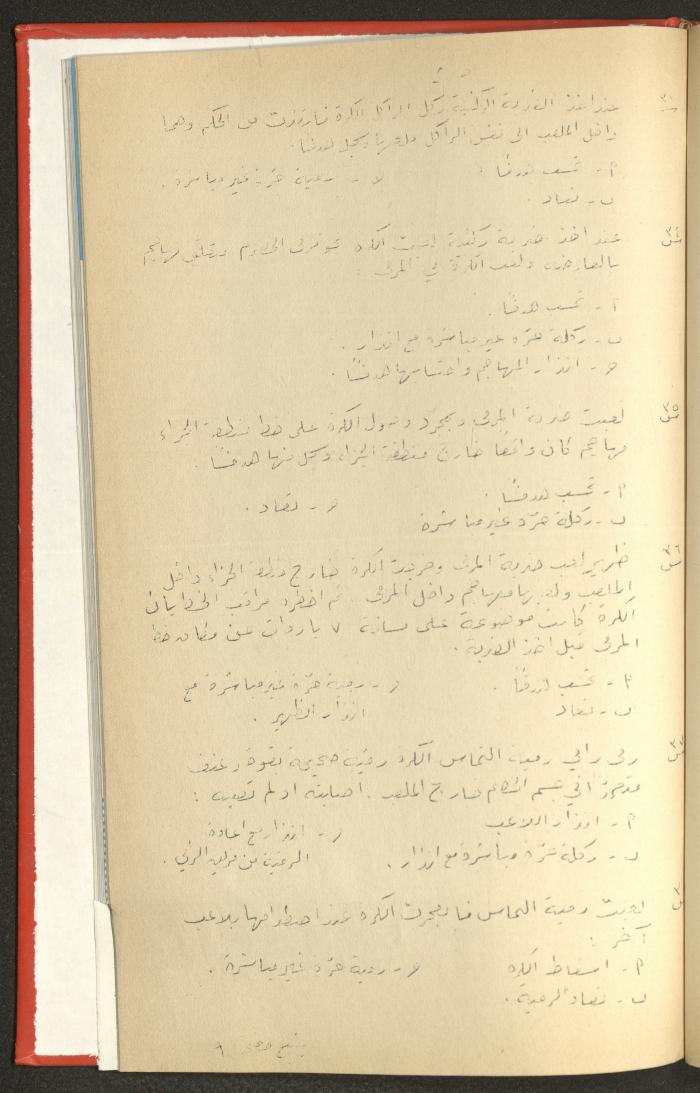 عند اخذ الضربة الركنية ركل الراكل الكرة فارتدت من الحكم وهما
داخل الملعب الى نفس الراكل ولعبها وسجل هدفا .
٢ - تحسب هدفًا . ح - رمية حرة غير مباشرة .
ب - تعاد .
س٣٤ عند اخذ ضربة ركنية لعبت الكره نحو مرمى الخصوم وتعلق مهاجم
بالعارضه ولعب الكرة في المرمى :
٢ - تحسب هدفًا .
ب - ركلة حره غير مباشرة مع انذار .
ح - انذار المهاجم واحتسابها هدفًا .
س٣٥ لعبت ضربة المرمى وبمجرد وصول الكرة على خط منطقة الجزاء
مهاجم كان واقفا خارج منطقة الجزاء وسجل منها هدفًا .
٢ - تحسب هدفًا . ح - تعاد .
ب - ركلة حرة غير مباشرة
س٣٦ ظهير لعب ضربة المرمى وخرجت الكرة خارج منطقة الجزاء داخل
الملعب ولعبها مهاجم داخل المرمى . ثم اخطره مراقب الخط بان
الكرة كانت موضوعة على مسافة ٧ ياردات من خط
المرمى قبل اخذ الضربة .
٢ - تحسب هدفًا . ح - رمية حرة غير مباشرة مع
ب - تعاد انذار الظهير .
س٣٧ رمى رامي رمية التماس الكره رمية صحيحة بقوة وعنف
في جسم الخصم خارج الملعب . اصابته او لم تصبه :
٢ - انذار اللاعب ح - انذار مع اعادة
ب - ركلة حرة مباشرة مع انذار . الرمية من الرامي .
لعبت رمية التماس فانفجرت الكره عند اصطدامها بلاعب
آخر :
٢ - اسقاط الكره ح - رمية حره غير مباشرة .
ب - تعاد الرمية .
يتبع ٩